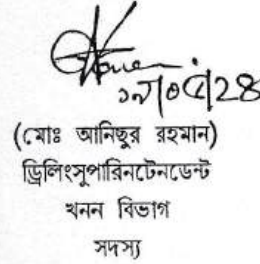 (মোঃ আনিছুর রহমান)
ড্রিলিংসুপারিনটেনডেন্ট
খনন বিভাগ
সদস্য